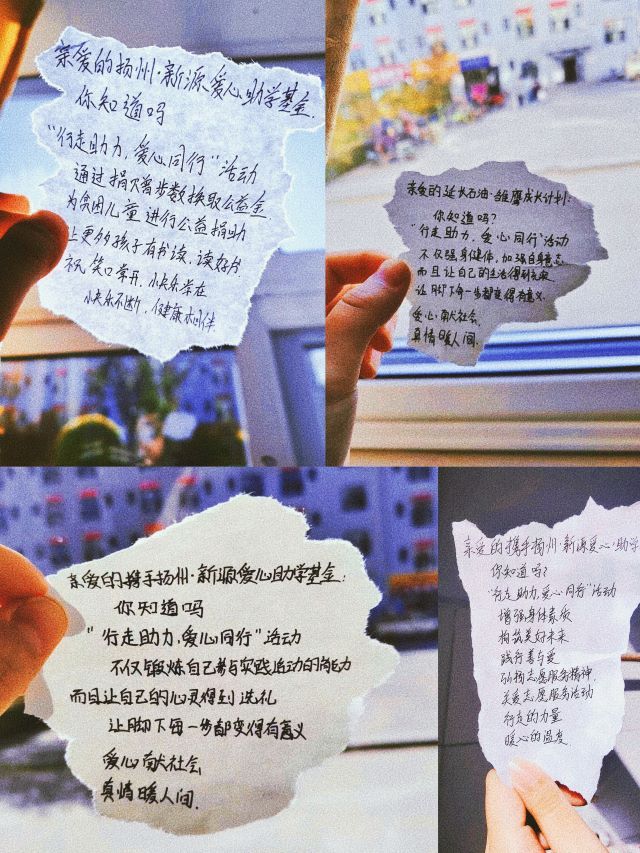 亲爱的扬州·新源爱心助学基金.
你知道吗
"行走助力,爱心同行"活动
通过捐赠步数换取公益金
为贫困儿童进行公益捐助
让更多孩子有书读、读好书
祝 笑口常开,小快乐常在
小快乐不断,健康相伴
亲爱的延长石油·雏鹰成长计划:
你知道吗?
"行走助力,爱心同行"活动
不仅强身健体,加强自身意志
而且让自己的生活得到充实
让脚下每一步都变得有意义
爱心献社会
真情暖人间.
亲爱的携手扬州·新源爱心助学基金:
你知道吗
"行走助力,爱心同行"活动
不仅锻炼自己参与实践活动的能力
而且让自己的心灵得到洗礼
让脚下每一步都变得有意义
爱心献社会
真情暖人间.
亲爱的携手扬州·新源爱心助学
你知道吗?
"行走助力,爱心同行"活动
增强身体素质
构筑美好未来
践行善与爱
弘扬志愿服务精神
关爱志愿服务活动
行走的力量
暖心的温度